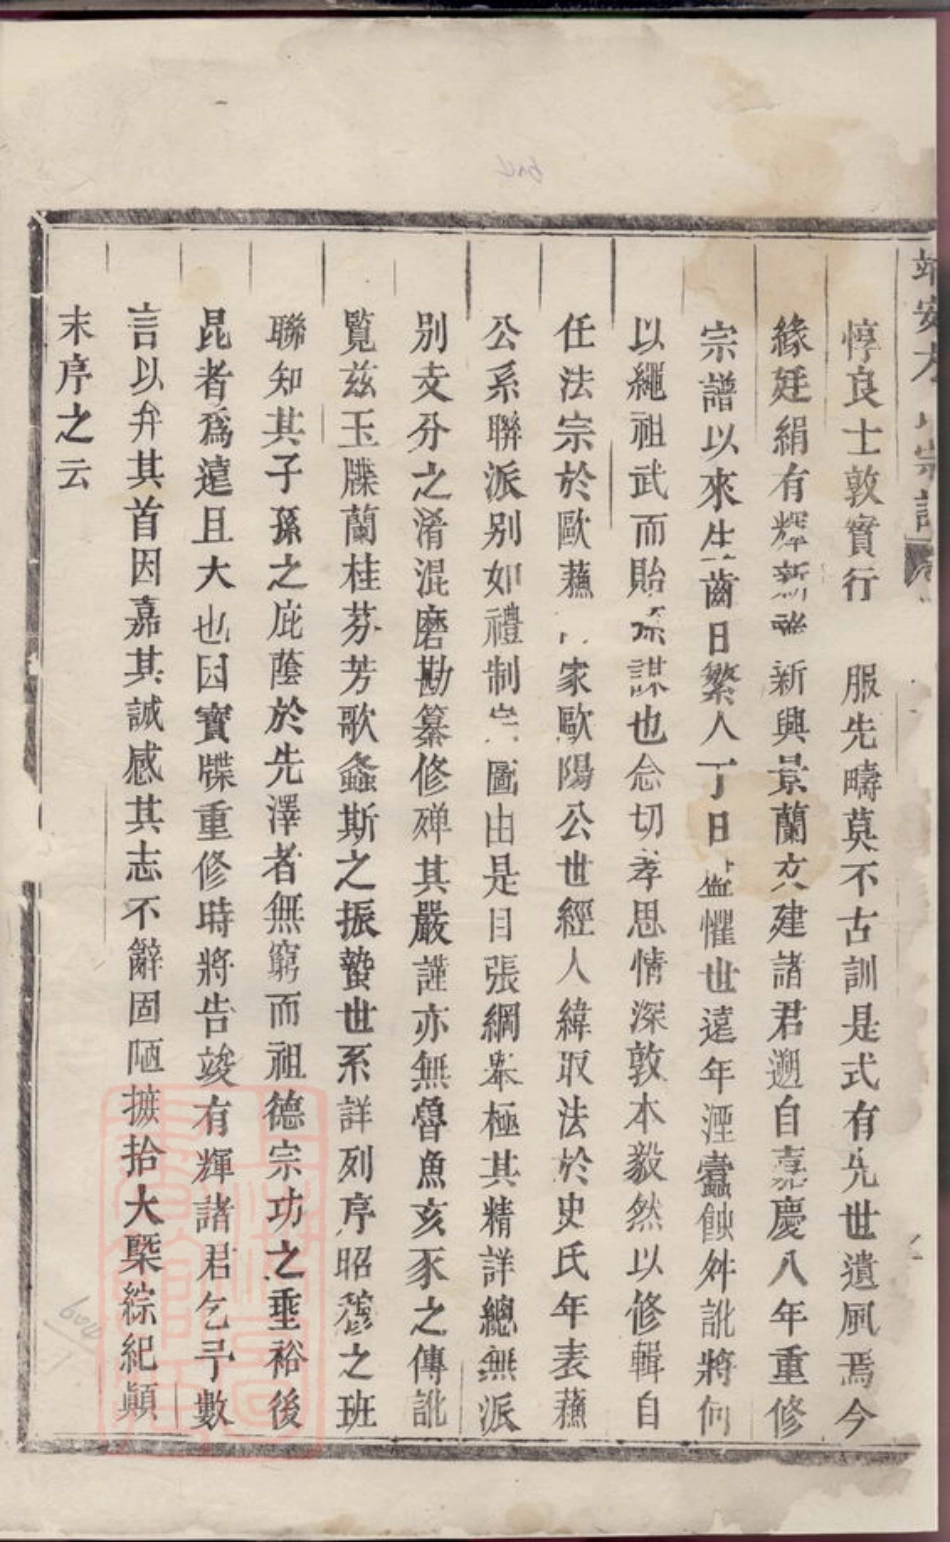 惇良士敦實行服先疇莫不古訓是式有先世遺風焉今
緣廷絹有輝新新興景蘭立建諸君遡自嘉慶八年重修
宗譜以來生齒日繁人丁日盛懼世遠年湮蠹蝕舛訛將何
以繩祖武而貽孫謀也念切孝思情深敦本毅然以修輯自
任法宗於歐蘓家歐陽公世經人緯取法於史氏年表蘓
公系聯派别如禮制宗圖由是目張綱舉極其精詳總無派
别支分之淆混磨勘纂修殫其嚴謹亦無魯魚亥豕之傳訛
覧兹玉牒蘭桂芬芳歌螽斯之振蟄世系詳列序昭穆之班
聯知其子孫之庇蔭於先澤者無窮而祖德宗功之垂裕後
昆者爲遠且大也因寶牒重修時將告竣有輝諸君乞予數
言以弁其首因嘉其誠感其志不辭固陋摭拾大槩綜紀顛
末序之云
靖安宗譜